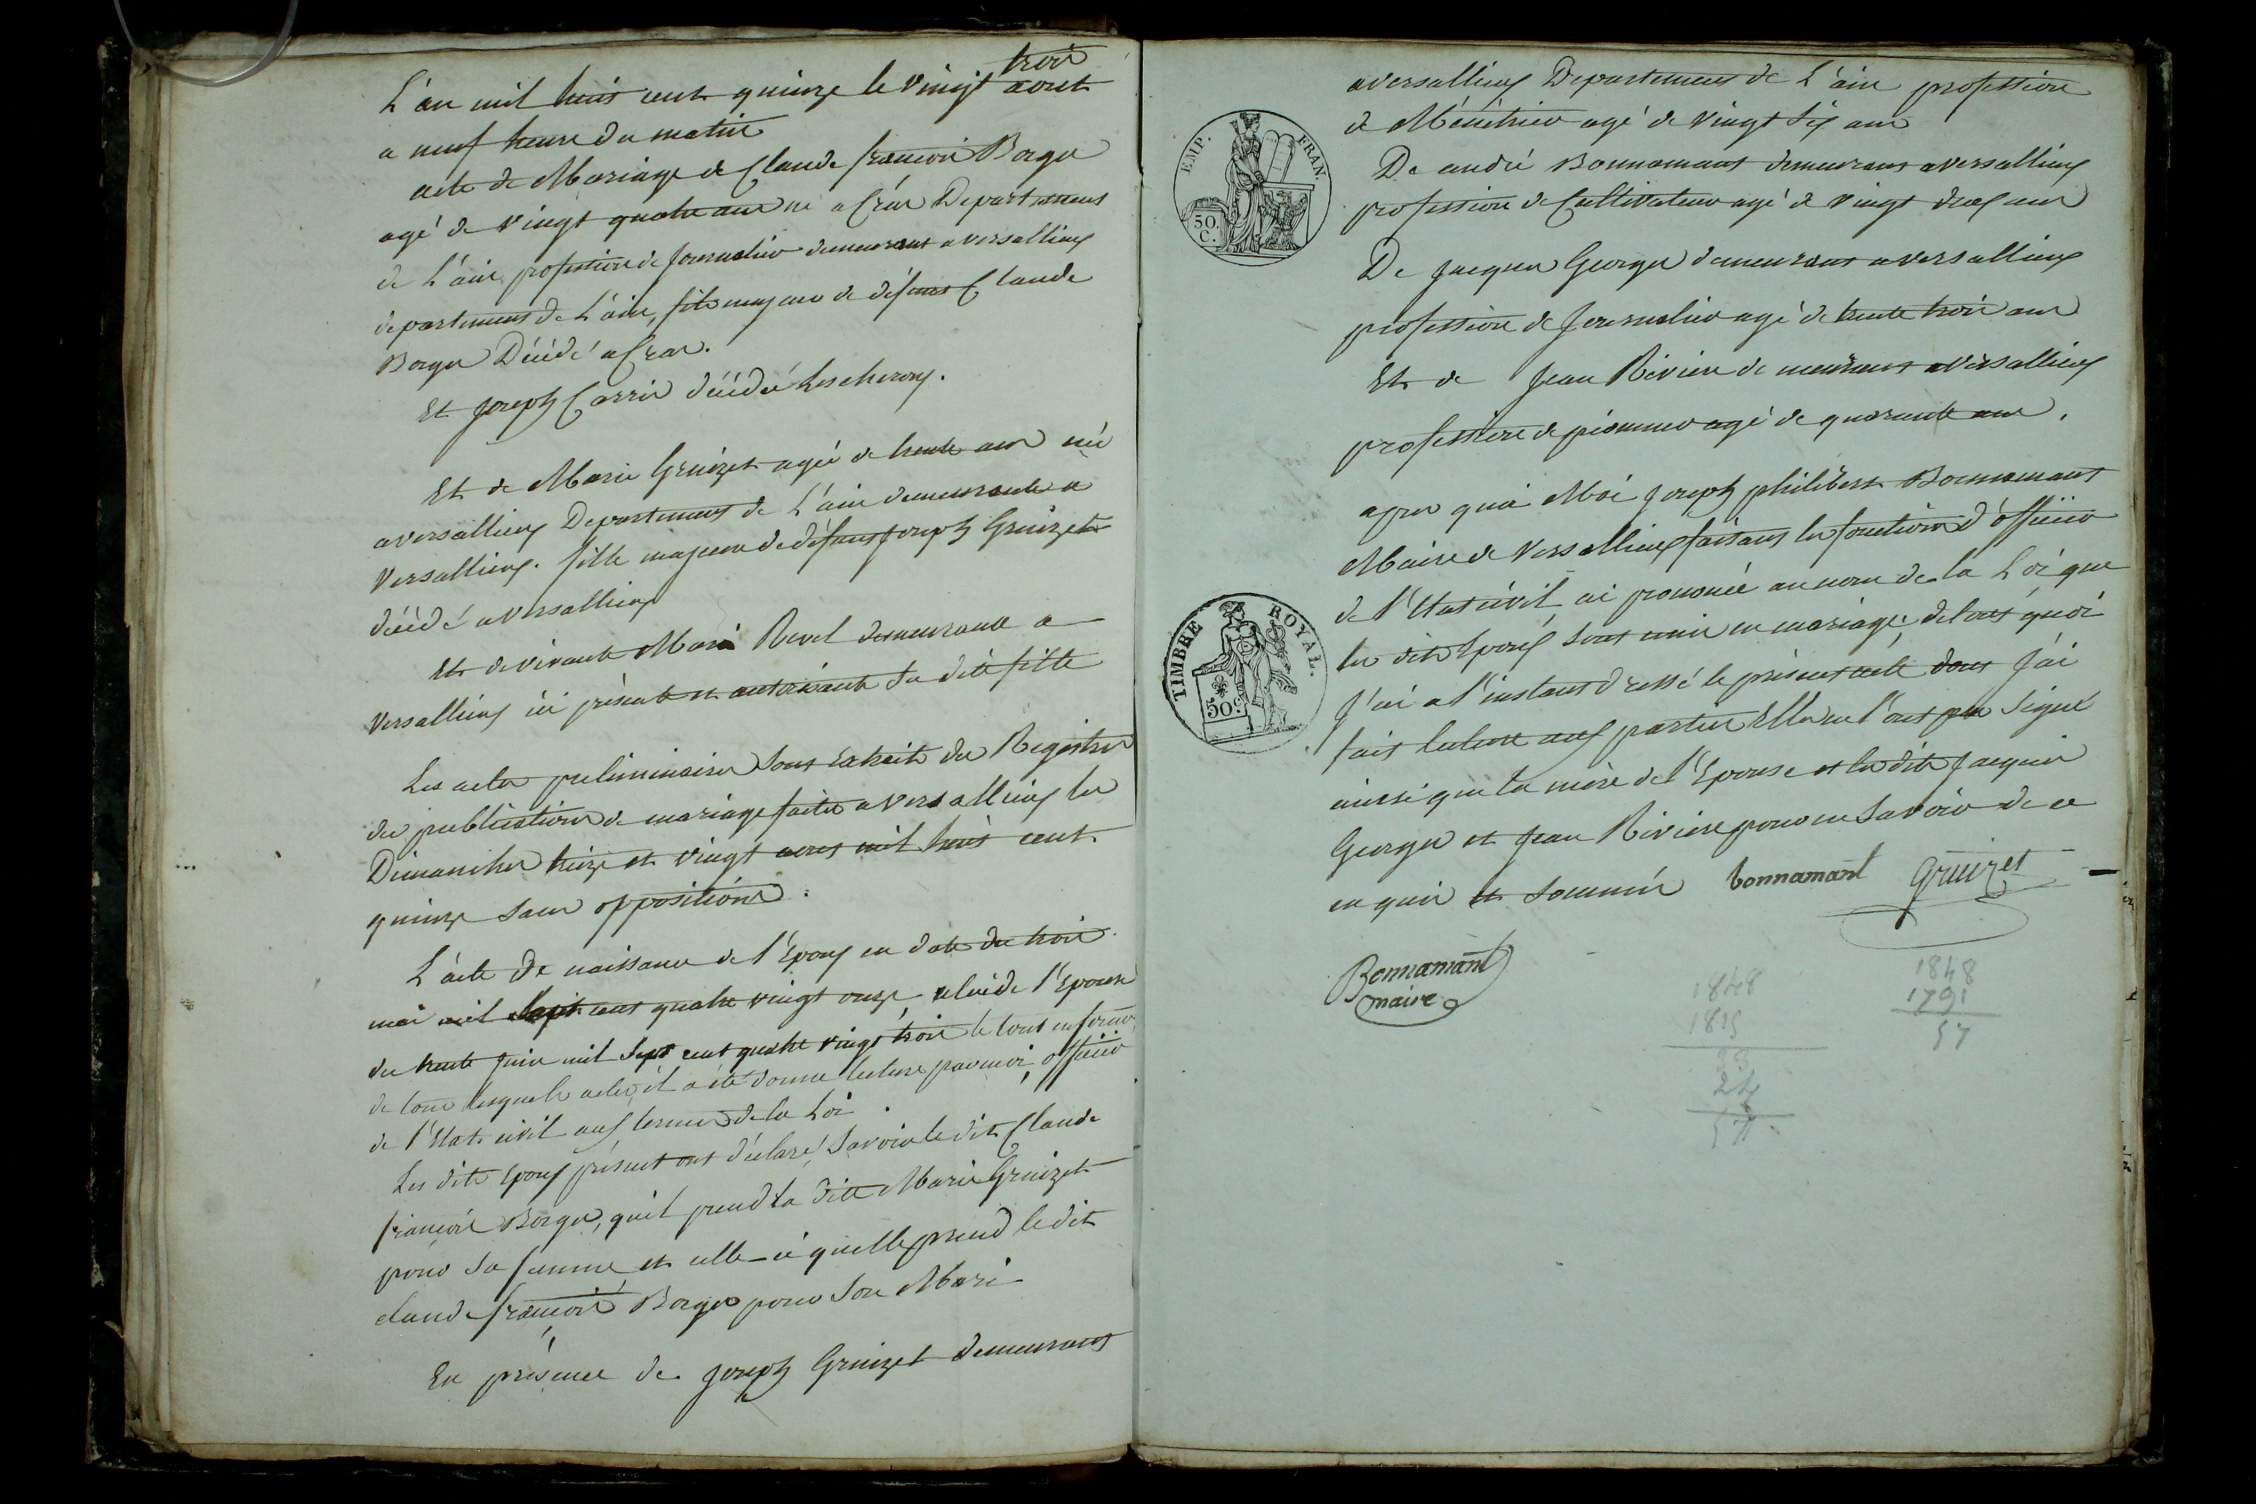 L'an mil huit cent quinze le vingt trois aout
a neuf heure du matin
acte de Mariage de Claude françois Borger
agé de vingt quatre ans né a Crâs Departement
de L'ain profession de Journalier demeurant a versallieux
departement de L'ain, fils majeur de défunt Claude
Borger Décédé a Cras.
Et Joseph Carrier décédé Lescheroux.
Et de Marie Gruizet agée de trente ans née
a versallieux Departement de L'ain demeurante a
Versallieux. fille majeure de défunt Joseph Gruizet
décédé a versallieux
Et de vivante Marie Revel demeurante a
Versallieux ici présente et autorisante Sa dite fille
Les actes preliminaires Sont Extraits des Registres
des publications de mariage faites a versallieux les
Dimanches treize et vingt aout mil huit cent
quinze sans oppositions.
L'acte De naissance de l'Epoux en date du trois
mai mil Sept cent quatre vingt onze, celui de l'Epouse
du trente Juin mil Sept cent quatre vingt trois le tout en forme
de tous lesquels actes, il a été donné lecture par moi, officier
de l'Etat civil aux termes de la Loi.
Les dits Epoux présent ont déclaré Savoir le dit Claude
françois Borger, quil prend La ditte Marie Gruizet
pour Sa femme et celle-ci quelle prend le dit
claude françois Borger pour Son Mari
En présence de Joseph Gruizet demeurant
a versallieux Departement de L'ain profession
de Ménétrier agé de vingt Six ans
De andré Bonnamant demeurant a versallieux
profession de Cultivateur agé de vingt deux ans
De Jacques Georges demeurant a versallieux
profession de Journalier agé de trente trois ans
Et de Jean Riviere demeurant a versallieux
profession de pionnier agé de quarante ans.
apres quoi Moi Joseph philibert Bonnamant
Maire de Versallieux faisant les fonctions d'officier
de l'Etat civil ai prononcé au nom de la Loi que
les dits Epoux Sont unis en mariage, de tout quoi
J'ai a l'instant dressé le présent acte dont J'ai
fait lecture aux parties Elles ne l'ont pas Signé
ainsi que la mère de l'Epouse et les dits Jacques
Georges et Jean Riviere pour ne Savoir de ce
enquis et Sommés bonnamant Gruizet
Bonnamant
maire
EMP. FRAN.
50 C.
TIMBRE ROYAL.
50c
1848
1815
33
24
57
1848
1791
57